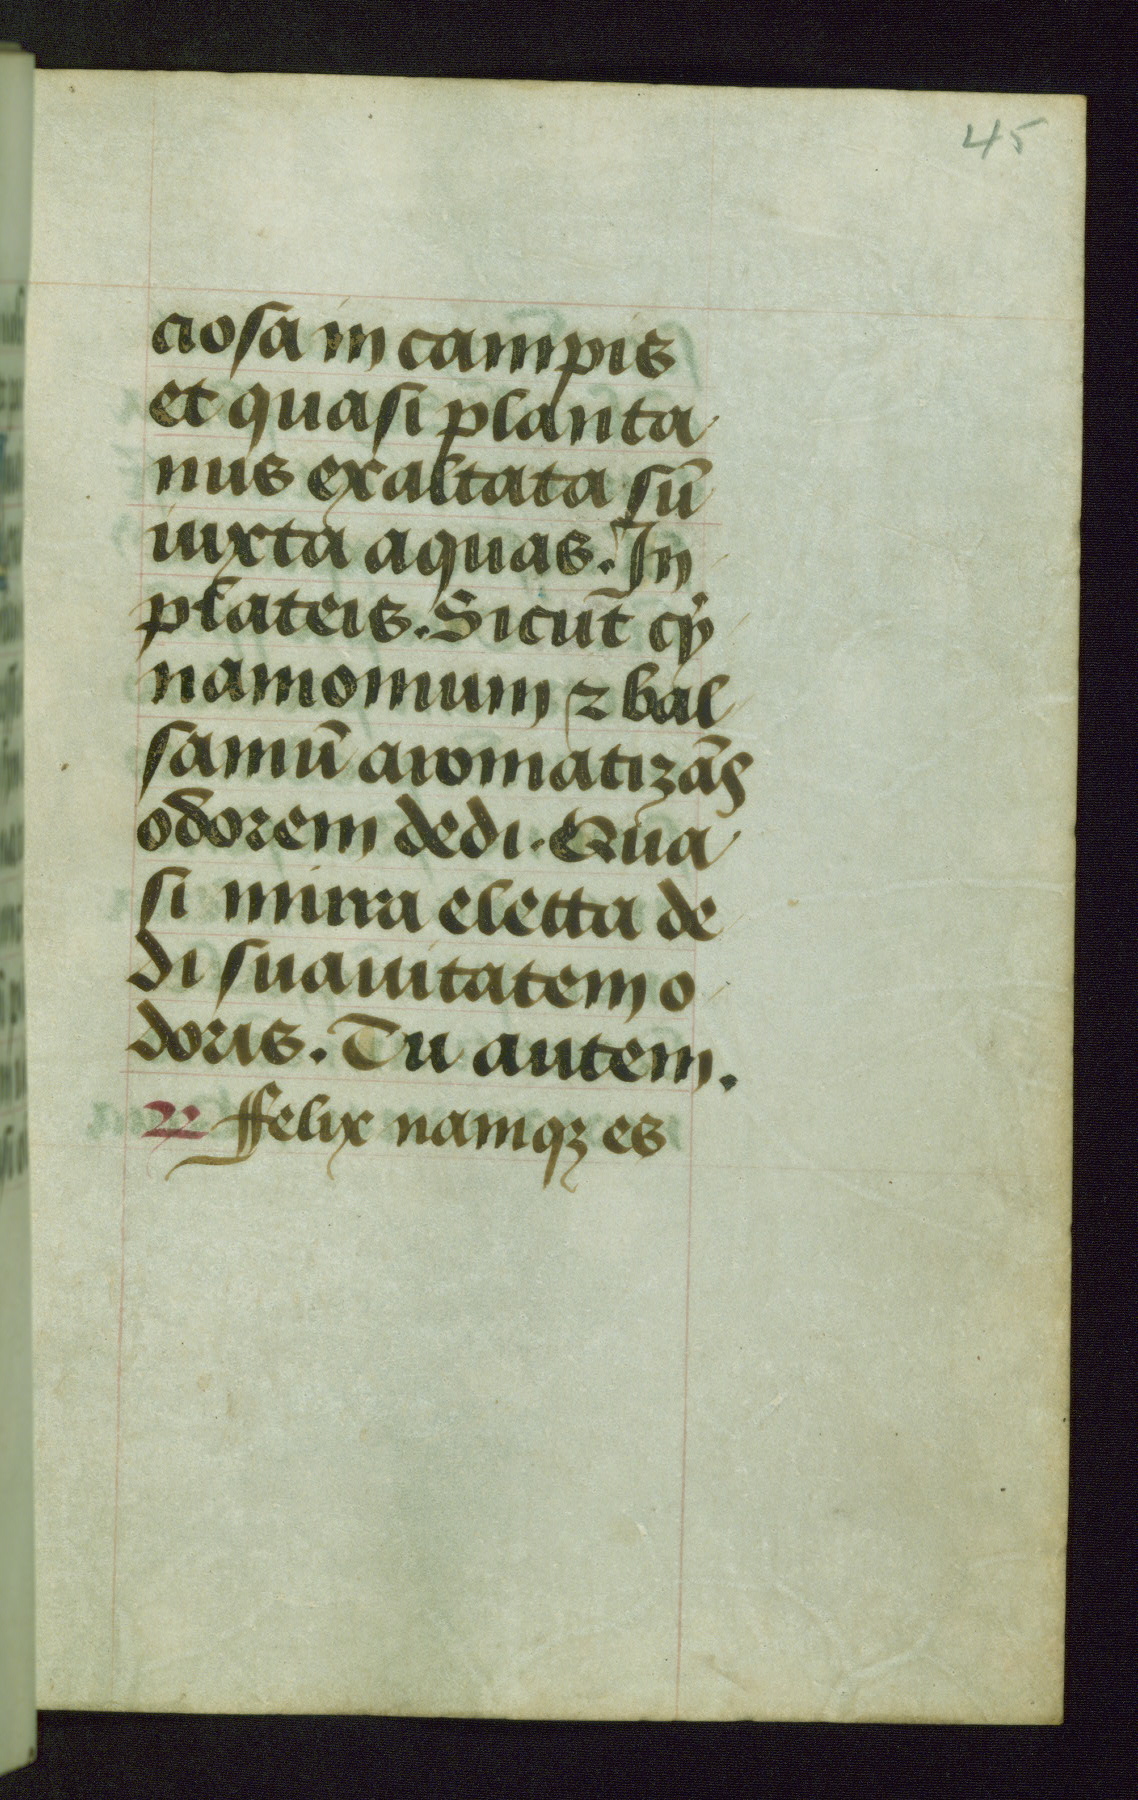 45
ciosa in campis
et quasi planta
nus exaltata sū
iuxta aquas. In
plateis. Sicut̄ cÿ
namomum ⁊ bal
samū aromatizās
odorem dedi. Qua
si mirra eletta de
di suauitatem o
doris. Tu autem.
℟ ffelix namqꝫ es